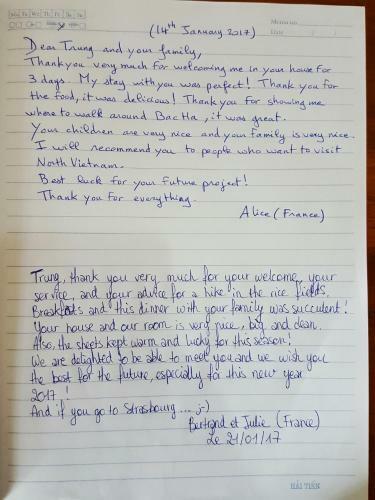 Memo no.
Date
(14th January 2017)
Dear Trung and your family,
Thank you very much for welcoming me in your house for
3 days. My stay with you was perfect! Thank you for
the food, it was delicious! Thank you for showing me
where to walk around Bac Ha, it was great.
Your children are very nice and your family is very nice.
I will recommend you to people who want to visit
North Vietnam.
Best luck for your future project!
Thank you for everything.
Alice (France)
Trung, thank you very much for your welcome, your
service, and your advice for a hike in the rice fields.
Breakfasts and this dinner with your family was succulent!
Your house and our room is very nice, big and clean.
Also, the sheets kept warm and lucky for this season!
We are delighted to be able to meet you and we wish you
the best for the future, especially for this new year
2017!
And if you go to Strasbourg... ;-)
Bertrand et Julie (France)
Le 21/01/17
HẢI TIẾN